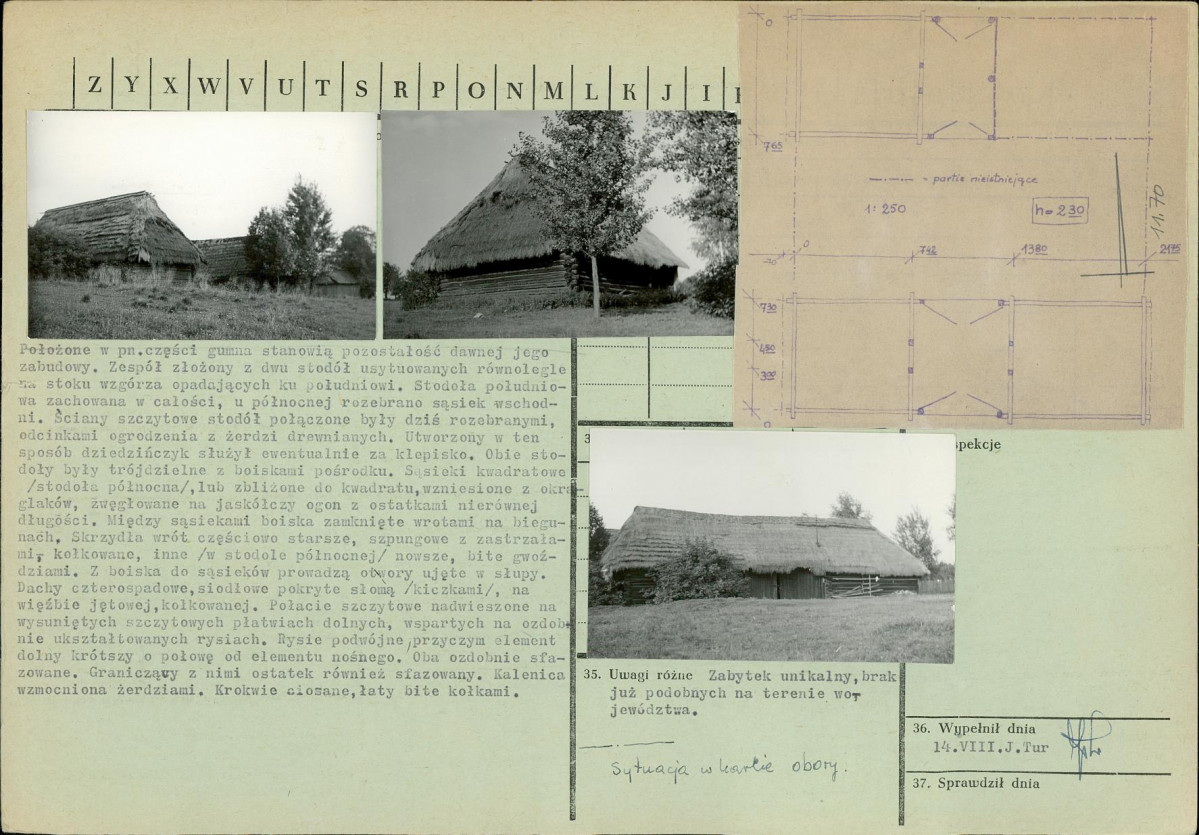 Z Y X W V U T S R P O N M L K J I
0
765
— · — · — = partie nieistniejące
1:250
h=230
11.70
0
742
1380
2175
730
450
300
Położone w pn.części gumna stanowią pozostałość dawnej jego
zabudowy. Zespół złożony z dwu stodół usytuowanych równolegle
na stoku wzgórza opadających ku południowi. Stodoła południo-
wa zachowana w całości, u północnej rozebrano sąsiek wschod-
ni. Ściany szczytowe stodół połączone były dziś rozebranymi,
odcinkami ogrodzenia z żerdzi drewnianych. Utworzony w ten
sposób dziedzińczyk służył ewentualnie za klepisko. Obie sto-
doły były trójdzielne z boiskami pośrodku. Sąsieki kwadratowe
/stodoła północna/,lub zbliżone do kwadratu,wzniesione z okrą
glaków, zwęgłowane na jaskółczy ogon z ostatkami nierównej
długości. Między sąsiekami boiska zamknięte wrotami na biegu-
nach. Skrzydła wrót częściowo starsze, szpungowe z zastrzała-
mi, kołkowane, inne /w stodole północnej/ nowsze, bite gwoź-
dziami. Z boiska do sąsieków prowadzą otwory ujęte w słupy.
Dachy czterospadowe,siodłowe pokryte słomą /kiczkami/, na
więźbie jętowej,kołkowanej. Połacie szczytowe nadwieszone na
wysuniętych szczytowych płatwiach dolnych, wspartych na ozdob
nie ukształtowanych rysiach. Rysie podwójne,przyczym element
dolny krótszy o połowę od elementu nośnego. Oba ozdobnie sfa-
zowane. Graniczący z nimi ostatek również sfazowany. Kalenica
wzmocniona żerdziami. Krokwie ciosane,łaty bite kołkami.
spekcje
35. Uwagi różne Zabytek unikalny,brak
już podobnych na terenie wo-
jewództwa.
Sytuacja w karcie obory.
36. Wypełnił dnia
14.VIII.J.Tur
37. Sprawdził dnia